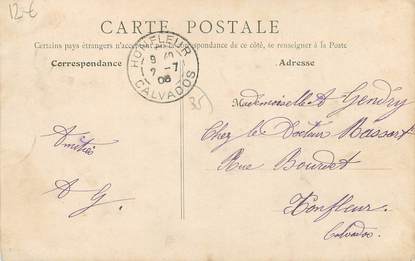 12-€
CARTE POSTALE
Certains pays étrangers n'acceptant pas de correspondance de ce côté, se renseigner à la Poste
Correspondance
Adresse
HONFLEUR
2-7
06
CALVADOS
35
Mademoiselle A Gendry
Chez le Docteur Massart
Rue Bourdet
Honfleur.
Calvados.
Amitiés
A G.